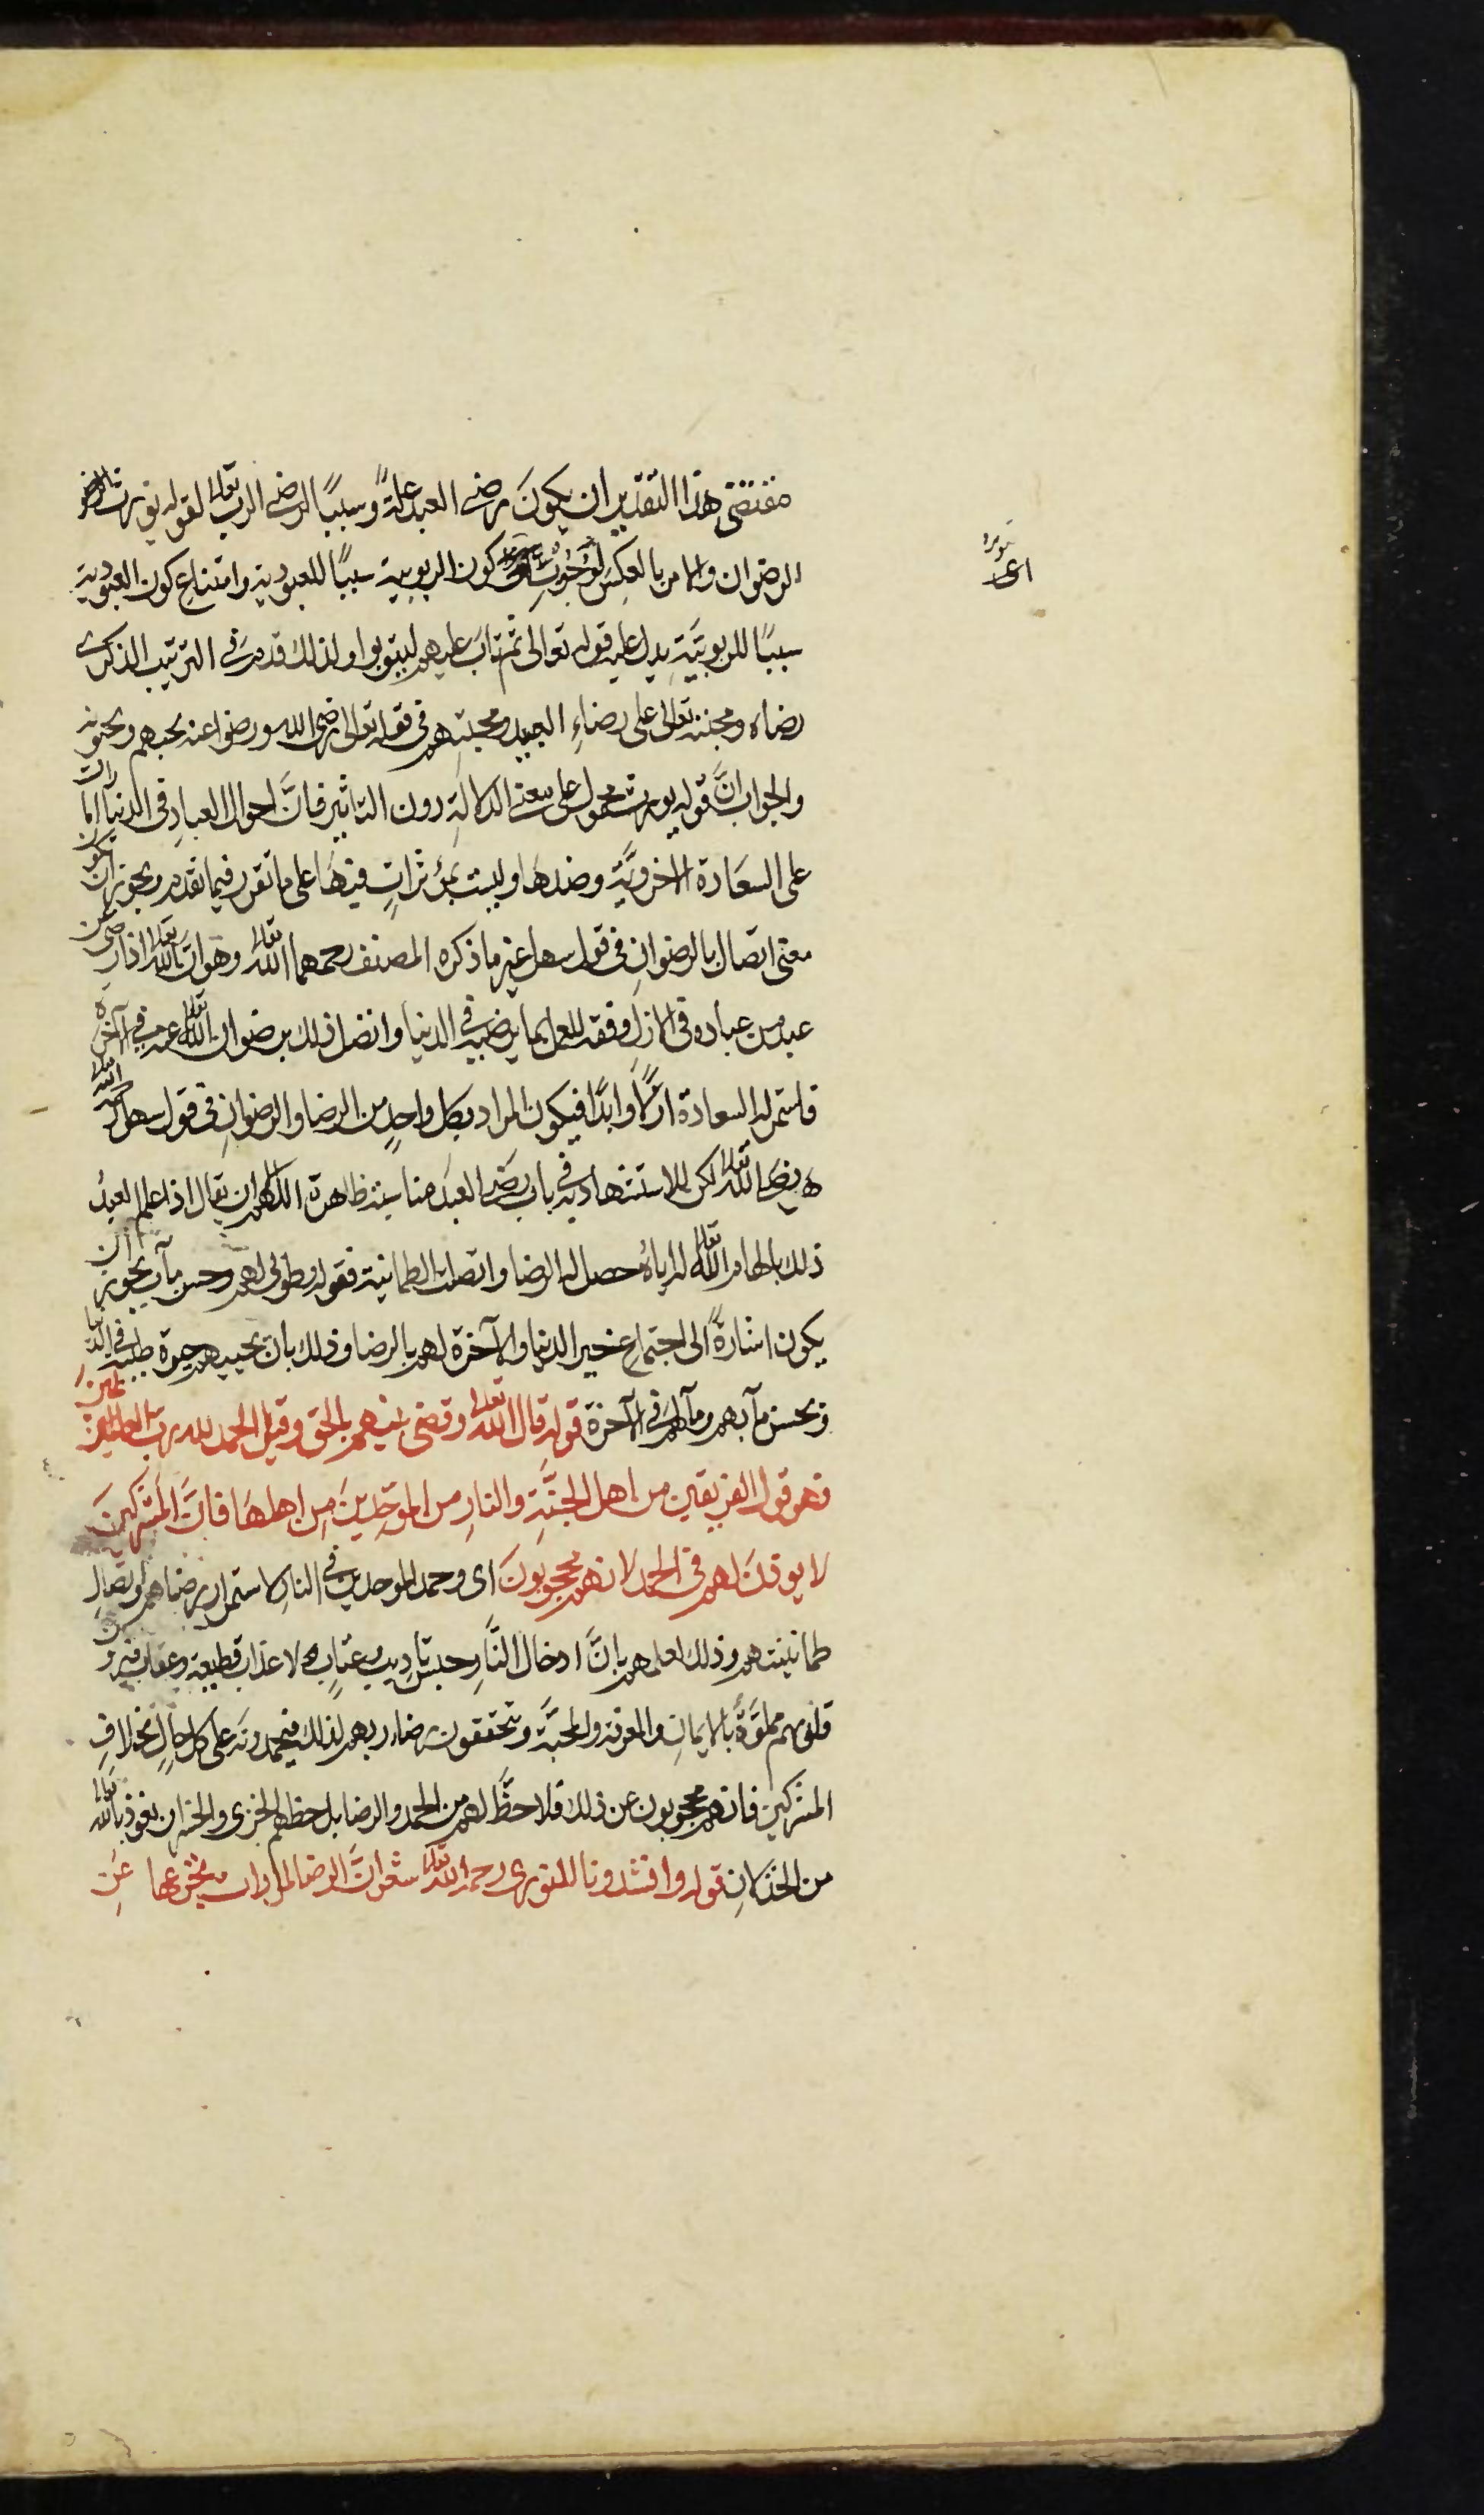 مقتضى هذا التقدير ان يكون رضى العبد علةً وسببًا لرضى الرب تعالى لقوله يورث الرضو
الرضوان والامر بالعكس لوجوب كون الربوبية سببًا للعبودية وامتناع كون العبودية
سببًا للربوبيّة يدل عليه قوله تعالى ثم تاب عليهم ليتوبوا ولذلك قدم في الترتيب الذكرى
رضاه ومحبته تعالى على رضاءِ العبيد ومحبتهم في قوله تعالى رضى الله ورضوا عنه يحبهم ويحبونه
والجواب انّ قوله يورث محمول على معنى الدلالة دون التاثير فانّ احوال العبادِ في الدنيا امارات
على السعادة الاخرويّة وضدها وليست بمؤثراتٍ فيها على ما تقرر فيما تقدم ويجوز ان يكون
معنى اتصال بالرضوانِ في قول سهل غير ما ذكره المصنف رحمهما الله تعالى وهو ان الله تعالى اذا رضى عن
عبد من عباده في الازل وفقه للعمل بما يرضيه في الدنيا واتصل ذلك برضوان الله تعالى عنه في الآخرة
فاستمر له السعادة ازلًا وابدًا فيكون المراد بكل واحدٍ من الرضا والرضوانِ في قول سهل رحمه الله
رضى الله تعالى لكن للاستشهاد به في باب رضى العبد مناسبة ظاهرة اللهم الا ان يقال اذا علم العبدُ
ذلك بالهام الله تعالى له اياهُ حصل له الرضا واتصلت الطمانينة فقوله طوبى لهم وحسن مآب يجوز ان
يكون اشارةً الى اجتماع خير الدنيا والآخرة لهم بالرضا وذلك بان يحييهم حيوة طيبة في الدنيا
ويحسن مآبهم ومآلهم في الآخرة قوله قال الله تعالى وقضى بينهم بالحق وقيل الحمد لله رب العالمين
فهو قول الفريقين من اهل الجنّةِ والنارِ من الموحّدينَ من اهلها فانّ المشركينَ
لا يوذنَ لهم في الحمد لانهم محجوبونَ اى وحمد الموحدين في النار لاستمرار رضاهم واتصالِ
طمانينتهم وذلك لعلمهم بانّ ادخال النّار حبس تاديب وعتابٍ لا عذاب قطيعة وعقاب
قلوبهم مملوّة بالايمانِ والمعرفة والمحبّة ويتحققون رضاء ربهم لذلك فيحمدونه على كل حالٍ بخلافِ
المشركين فانهم محجوبون عن ذلك فلا حظّ لهم من الحمد والرضا بل حظهم الخزى والخسران نعوذ بالله تعالى
من الخذلانِ قوله وانشدونا للنورى رحمه الله تعالى شعر انّ الرضا لمرارات تجرعها عن